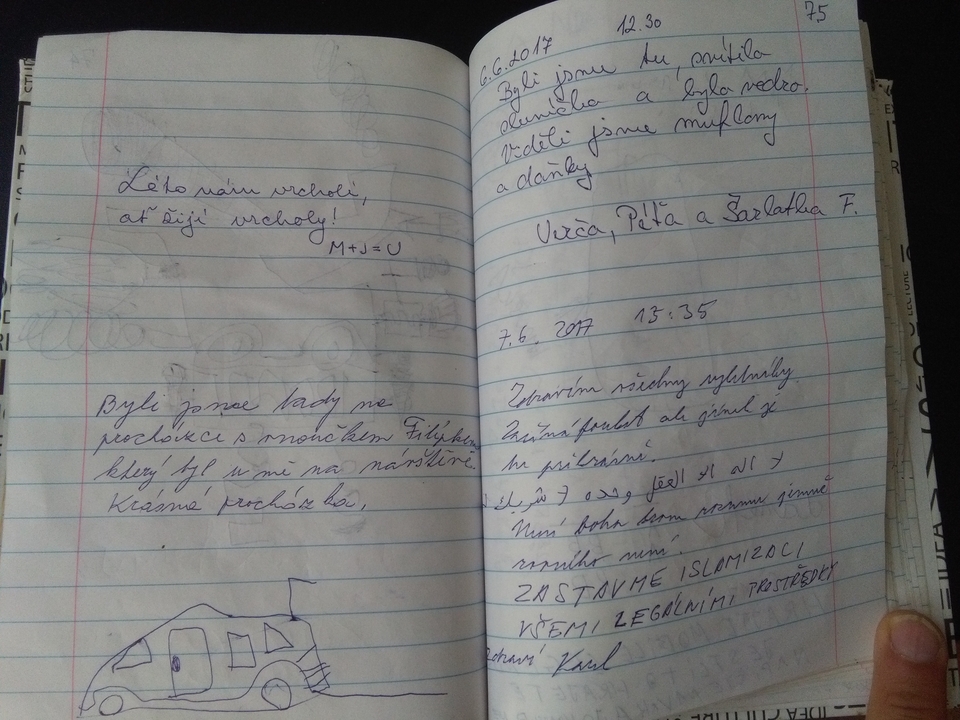 Léto nám vrcholí,
ať žijí vrcholy!
M+J=U
Byli jsme tady na
procházce s vnoučkem Filípkem
který byl u mě na návštěvě.
Krásná procházka.
75
6.6.2017 12.30
Byli jsme tu, svítila
sluníčka a byla vedro.
Viděli jsme muflony
a daňky
Verča, Péťa a Šarlotka F.
7.6. 2017 13:35
Zdravím všechny výletníky
ale jinak je
tu příkrásně.
لا اله الا وحده لا شريك
Není boha krom rozumu jemuž
rovného není.
ZASTAVME ISLAMIZACI
VŠEMI LEGÁLNÍMI PROSTŘEDKY
Zdraví Karel